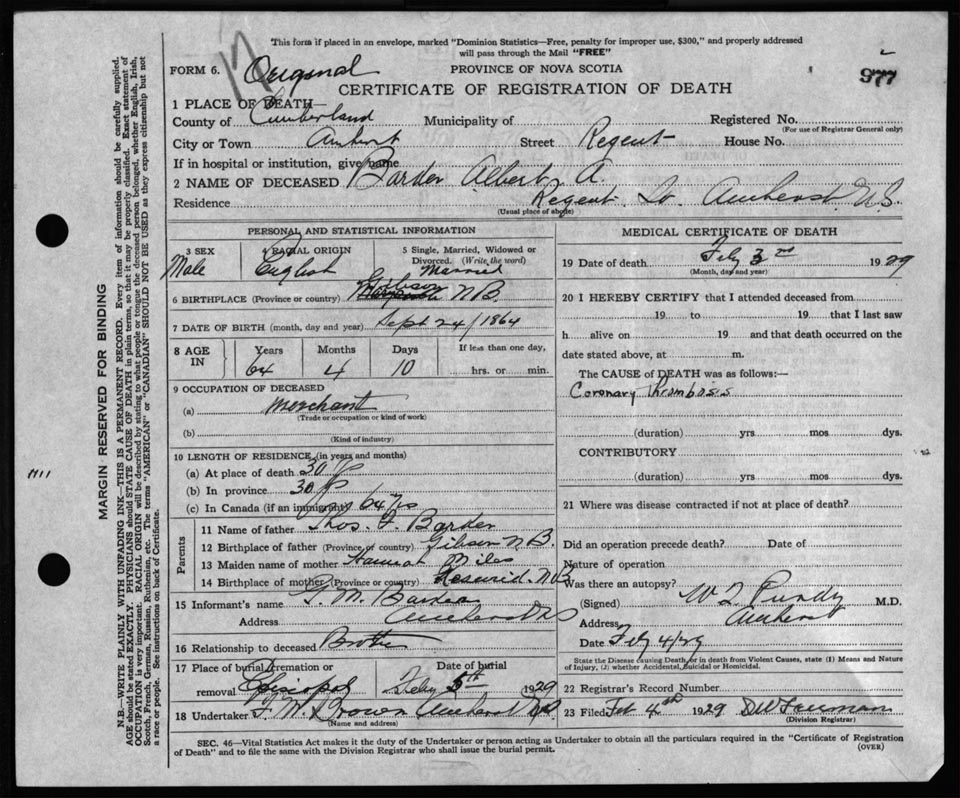 This form if placed in an envelope, marked "Dominion Statistics—Free, penalty for improper use, $300," and properly addressed
will pass through the Mail "FREE"
FORM 6. Original
PROVINCE OF NOVA SCOTIA
977
CERTIFICATE OF REGISTRATION OF DEATH
1 PLACE OF DEATH—
County of Cumberland Municipality of Registered No.
(For use of Registrar General only)
City or Town Amherst Street Regent House No.
If in hospital or institution, give name
2 NAME OF DECEASED Barder Albert A.
Residence Regent St. Amherst N.S.
(Usual place of abode)
PERSONAL AND STATISTICAL INFORMATION
3 SEX 4 RACIAL ORIGIN 5 Single, Married, Widowed or
Divorced. (Write the word)
Male English Married
6 BIRTHPLACE (Province or country) N B.
7 DATE OF BIRTH (month, day and year) Sept 24/1864
8 AGE IN Years Months Days If less than one day,
64 4 10 hrs. or min.
9 OCCUPATION OF DECEASED
(a) Merchant
(Trade or occupation or kind of work)
(b)
(Kind of industry)
10 LENGTH OF RESIDENCE (in years and months)
(a) At place of death 30 yrs
(b) In province 30 yrs
(c) In Canada (if an immigrant) 64 yrs
Parents
11 Name of father Thos. F. Barder
12 Birthplace of father (Province or country) Gibson N.B.
13 Maiden name of mother Hannah Miles
14 Birthplace of mother (Province or country) N.B
15 Informant's name T. M. Barder
Address Amherst NS
16 Relationship to deceased Brother
17 Place of burial cremation or Date of burial
removal Episcopal Feby 5th 1929
18 Undertaker F. M. Brown Amherst N.S
(Name and address)
MEDICAL CERTIFICATE OF DEATH
19 Date of death Feby 3rd 1929
(Month, day and year)
20 I HEREBY CERTIFY that I attended deceased from
19 to 19 that I last saw
h alive on 19 and that death occurred on the
date stated above, at m.
The CAUSE of DEATH was as follows:—
Coronary Thrombosis
(duration) yrs mos dys.
CONTRIBUTORY
(duration) yrs mos dys.
21 Where was disease contracted if not at place of death?
Did an operation precede death? Date of
Nature of operation
Was there an autopsy?
(Signed) W T Purdy M.D.
Address Amherst
Date Feby 4/29
State the Disease causing Death, or in death from Violent Causes, state (1) Means and Nature
of Injury, (2) whether Accidental, Suicidal or Homicidal.
22 Registrar's Record Number
23 Filed Feb 4th 1929 DW Freeman
(Division Registrar)
SEC. 46—Vital Statistics Act makes it the duty of the Undertaker or person acting as Undertaker to obtain all the particulars required in the "Certificate of Registration
of Death" and to file the same with the Division Registrar who shall issue the burial permit.
(OVER)
MARGIN RESERVED FOR BINDING
N.B.—WRITE PLAINLY WITH UNFADING INK—THIS IS A PERMANENT RECORD. Every item of information should be carefully supplied.
AGE should be stated EXACTLY. PHYSICIANS should STATE CAUSE OF DEATH in plain terms, so that it may be properly classified. Exact statement of
OCCUPATION is very important. RACIAL ORIGIN will be described by stating to what people or tongue the deceased person belonged, whether English, Irish,
Scotch, French, German, Russian, Ruthenian, etc. The terms "AMERICAN" or "CANADIAN" SHOULD NOT BE USED as they express citizenship but not
a race or people. See instructions on back of Certificate.